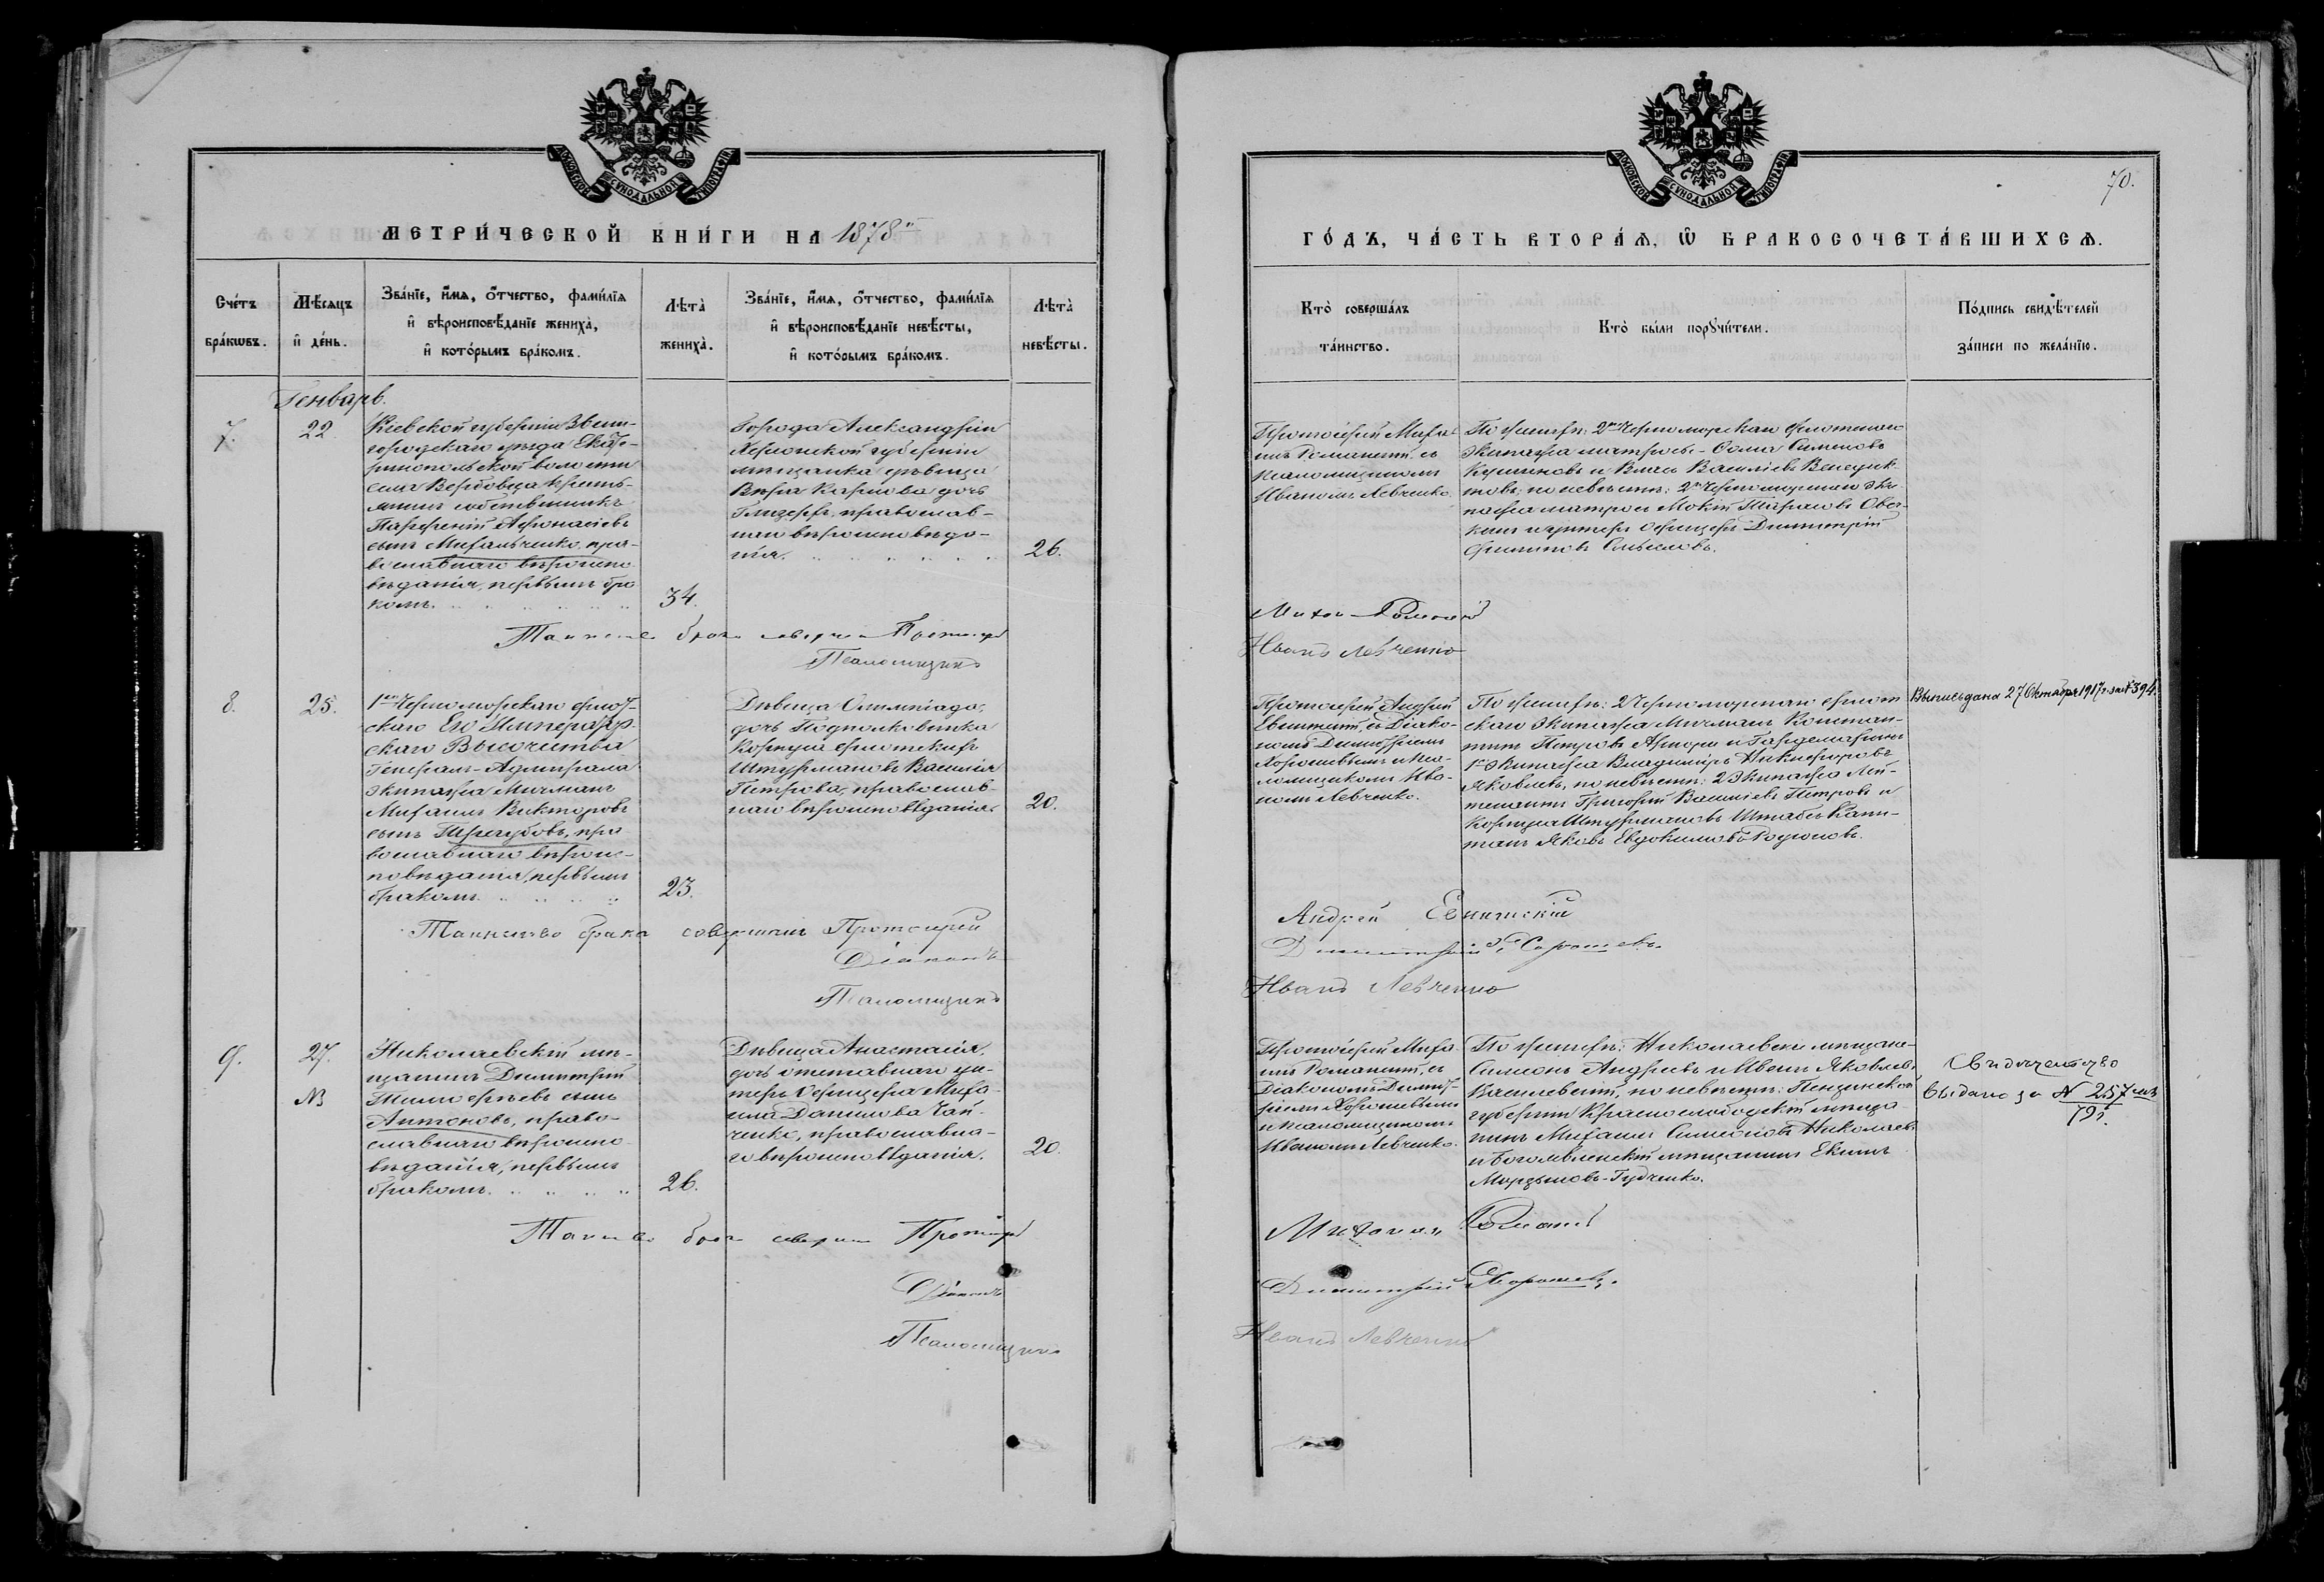 МОСКОВСКОЙ СУНОДАЛЬНОЙ ТИПОГРАФІИ
МЕТРИ́ЧЕСКОЙ КНИ́ГИ НА 1878й
Сче́тъ бра́кѡвъ.
Мѣ́сяцъ и де́нь.
Зва́нїе, и́мѧ, о́тчество, фами́лїѧ
и вѣроисповѣ́данїе жениха̀,
и кото́рымъ бра́комъ.
Лѣта̀ жениха̀.
Зва́нїе, и́мѧ, о́тчество, фами́лїѧ
и вѣроисповѣ́данїе невѣ́сты,
и кото́рымъ бра́комъ.
Лѣта̀ невѣ́сты.
Генварь.
7.
22.
Кіевской губерніи Звени-
городскаго уѣзда Екате-
ринопольской волости
села Вербовца кресть-
янинъ собственникъ
Парфеній Афонасіевъ
сынъ Михальченко, пра-
вославнаго вѣроиспо-
вѣданія, первымъ бра
комъ.
34.
Города Александріи
Херсонской губерніи
мѣщанка дѣвица
Вѣра Карпова дочь
православ-
наго вѣроисповѣда-
нія.
26.
Таинство брака совершилъ Протоіерей
Псаломщикъ
8.
25.
1го Черноморскаго флот-
скаго Его Император-
скаго Высочества
Генералъ-Адмирала
экипажа Мичманъ
Михаилъ Викторовъ
сынъ Перегубовъ, пра
вославнаго вѣроис-
повѣданія, первымъ
бракомъ.
23.
Дѣвица Олимпіада,
дочь Подполковника
Корпуса флотскихъ
Штурмановъ Василія
Петрова, православ-
наго вѣроисповѣданія.
20.
Таинство брака совершилъ Протоіерей
Діаконъ
Псаломщикъ
9.
27.
№
Николаевскій мѣ-
щанинъ Димитрій
Тимофеевъ сынъ
Антоновъ, право-
славнаго вѣроиспо-
вѣданія, первымъ
бракомъ.
26.
Дѣвица Анастасія,
дочь отставнаго ун-
теръ офицера Миха-
ила Данилова Чай-
ченко, православна-
го вѣроисповѣданія.
20.
Таинство брака совершилъ Протоіерей
Діаконъ
Псаломщикъ
МОСКОВСКОЙ СУНОДАЛЬНОЙ ТИПОГРАФІИ
70.
ГО́ДЪ, ЧА́СТЬ ВТОРА́Ѧ, Ѡ БРАКОСОЧЕТА́ВШИХСѦ.
Кто̀ соверша́лъ
та́инство.
Кто̀ бы́ли порꙋчи́тели.
По́дпись свидѣ́телей
за́писи по жела́нїю.
Протоіерей Миха-
илъ Романскій, съ
псаломщикомъ
Иваномъ Левченко.
По женихѣ: 2го Черноморскаго флотскаго
экипажа матросы - Сава Симеоновъ
и Власъ Василіевъ Венедик-
товъ; по невѣстѣ: 2го Черноморскаго эки-
пажа матросъ Мокій Тарасовъ
и унтеръ офицеръ Димитрій
Филиповъ
Иванъ Левченко
Протоіерей Андрей
съ Діако-
номъ Димитріемъ
Хорошевымъ и пса-
ломщикомъ Ива-
номъ Левченко.
По женихѣ: 2 Черноморскаго флот
скаго экипажа Мичманъ Констан-
тинъ Петровъ и Гардемаринъ
1го экипажа Владиміръ Никифоровъ
Яковлевъ, по невѣстѣ: 2 экипажа Лей-
тенантъ Григорій Василіевъ Петровъ и
Корпуса Штурмановъ Штабсъ Капи-
танъ Яковъ Евдокимовъ Родіоновъ.
Выпись дана 27 Октября 1917 г. за № 394.
Андрей
Димитрій Хорошевъ.
Иванъ Левченко
Протоіерей Миха
илъ Романскій, съ
Діакономъ Димит-
ріемъ Хорошевымъ
и псаломщикомъ
Иваномъ Левченко.
По женихѣ: Николаевскіе мѣщане-
Симеонъ Андреевъ и Иванъ Яковлевъ
Василевскій, по невѣстѣ: Пензенской
губерніи Краснослободскій мѣща-
нинъ Михаилъ Симеоновъ Николаевъ
и Богоявленскій мѣщанинъ Екимъ
Гудченко.
Свидѣтельство
выдано за № 257
Михаилъ Романскій
Димитрій Хорошевъ.
Иванъ Левченко